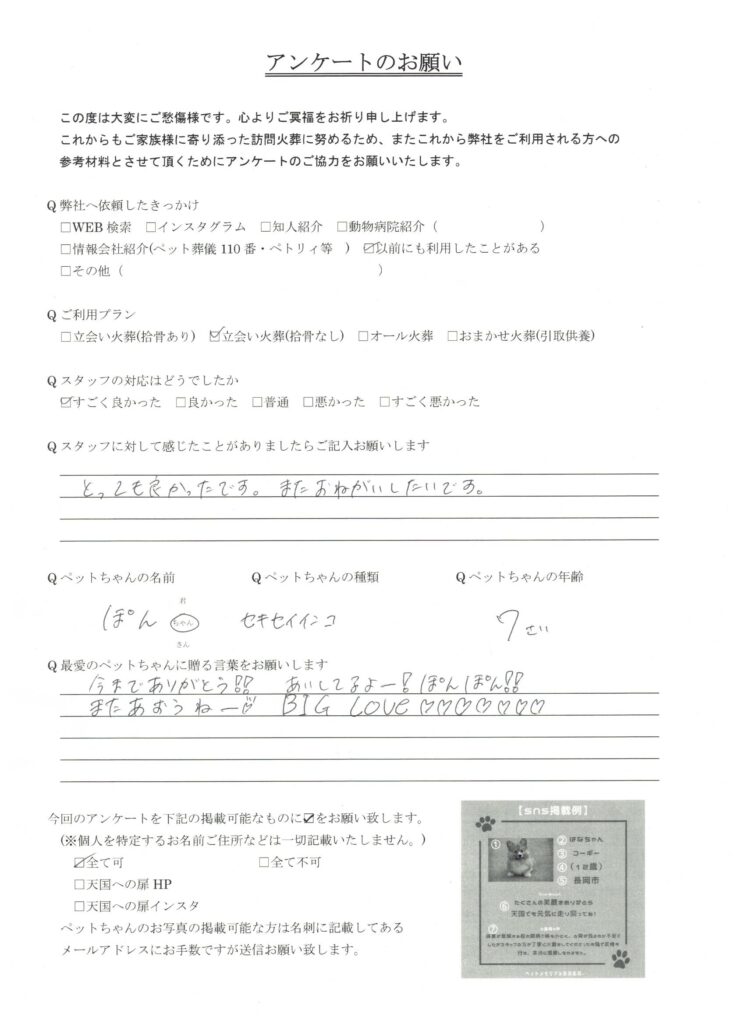 アンケートのお願い
この度は大変にご愁傷様です。心よりご冥福をお祈り申し上げます。
これからもご家族様に寄り添った訪問火葬に努めるため、またこれから弊社をご利用される方への
参考材料とさせて頂くためにアンケートのご協力をお願いいたします。
Q 弊社へ依頼したきっかけ
□WEB 検索 □インスタグラム □知人紹介 □動物病院紹介（ ）
□情報会社紹介(ペット葬儀 110 番・ペトリィ等 ) ☑以前にも利用したことがある
□その他（ ）
Q ご利用プラン
□立会い火葬(拾骨あり) ☑立会い火葬(拾骨なし) □オール火葬 □おまかせ火葬(引取供養)
Q スタッフの対応はどうでしたか
☑すごく良かった □良かった □普通 □悪かった □すごく悪かった
Q スタッフに対して感じたことがありましたらご記入お願いします
とっても良かったです。またおねがいしたいです。
Q ペットちゃんの名前 Q ペットちゃんの種類 Q ペットちゃんの年齢
君
ぽん ちゃん セキセイインコ 7さい
さん
Q 最愛のペットちゃんに贈る言葉をお願いします
今までありがとう!! あいしてるよー! ぽんぽん!!
またあおうねー♡ BIG LOVE ♡♡♡♡♡♡♡
今回のアンケートを下記の掲載可能なものに☑をお願い致します。
(※個人を特定するお名前ご住所などは一切記載いたしません。)
☑全て可 □全て不可
□天国への扉 HP
□天国への扉インスタ
ペットちゃんのお写真の掲載可能な方は名刺に記載してある
メールアドレスにお手数ですが送信お願い致します。
【sns掲載例】
① ② はなちゃん
③ コーギー
④ (12歳)
⑤ 長岡市
⑥ たくさんの笑顔をありがとう
天国でも元気に走り回ってね!
⑦